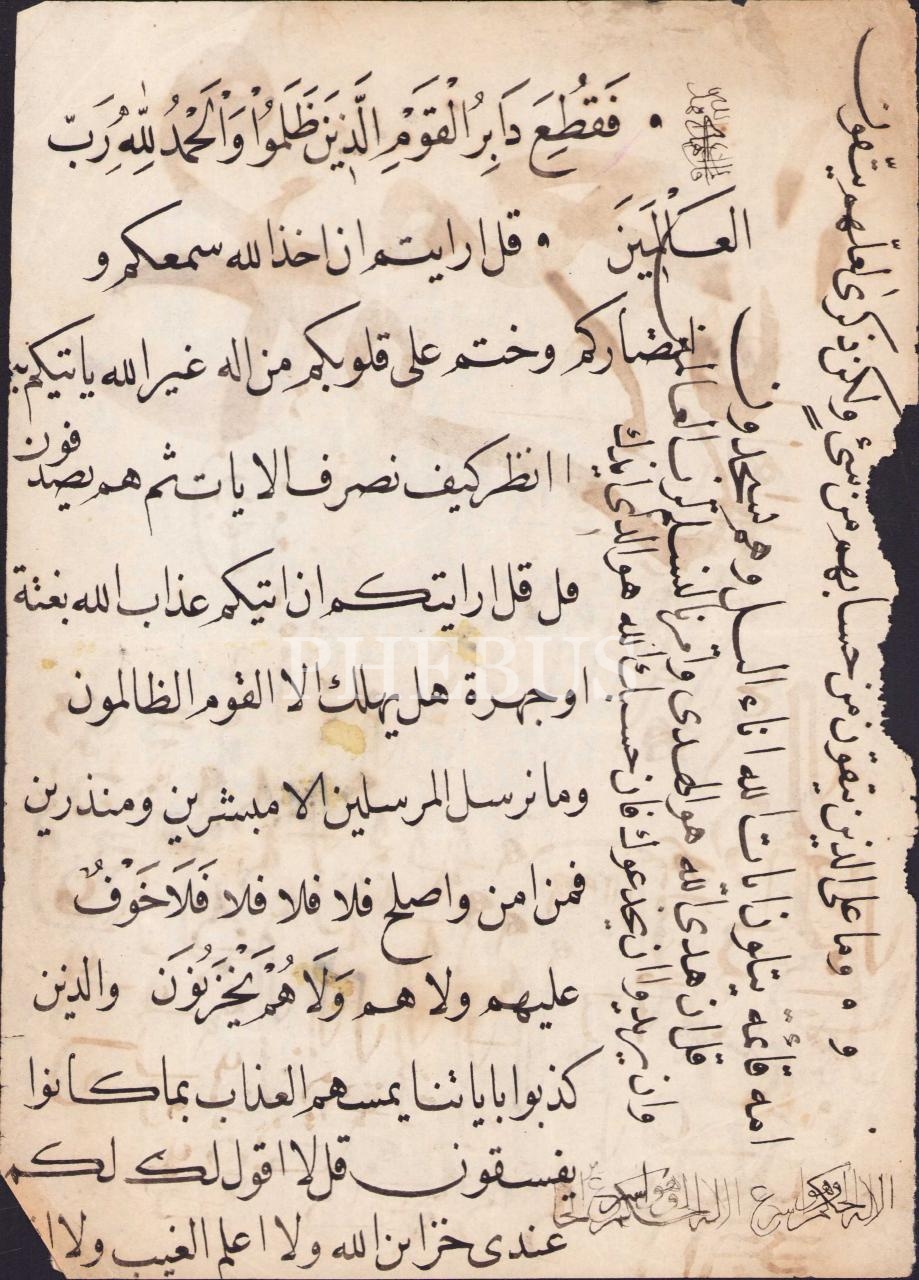 فَقُطِعَ دَابِرُ الْقَوْمِ الَّذِينَ ظَلَمُوا وَالْحَمْدُ لِلّٰهِ رَبّ
العَالَمِينَ قل ارايتم ان اخذ الله سمعكم و
ابصاركم وختم على قلوبكم من اله غير الله ياتيكم به
انظر كيف نصرف الايات ثم هم يصدفون
قل ارايتكم ان اتيكم عذاب الله بغتة
او جهرة هل يهلك الا القوم الظالمون
وما نرسل المرسلين الا مبشرين ومنذرين
فمن امن واصلح فلا فلا فلا فَلَا خَوْفٌ
عليهم ولا هم وَلَا هُمْ يَحْزَنُونَ والذين
كذبوا باياتنا يمسهم العذاب بما كانوا
يفسقون قل لا اقول لك لكم
عندى خزاين الله ولا اعلم الغيب ولا ا
و وما على الذين يتقون من حسابهم من شئ ولكن ذكرى لعلّهم يتّقون
امه قائمة يتلون ايات الله اناء اليل وهم يسجدون
قل ان هدى الله هو الهدى وامرنا لنسلم لرب العالمين
وان يريدوا ان يخدعوك فان حسبك الله هو الذى ايدك
الا له الحكم وهو اسرع
PHEBUS